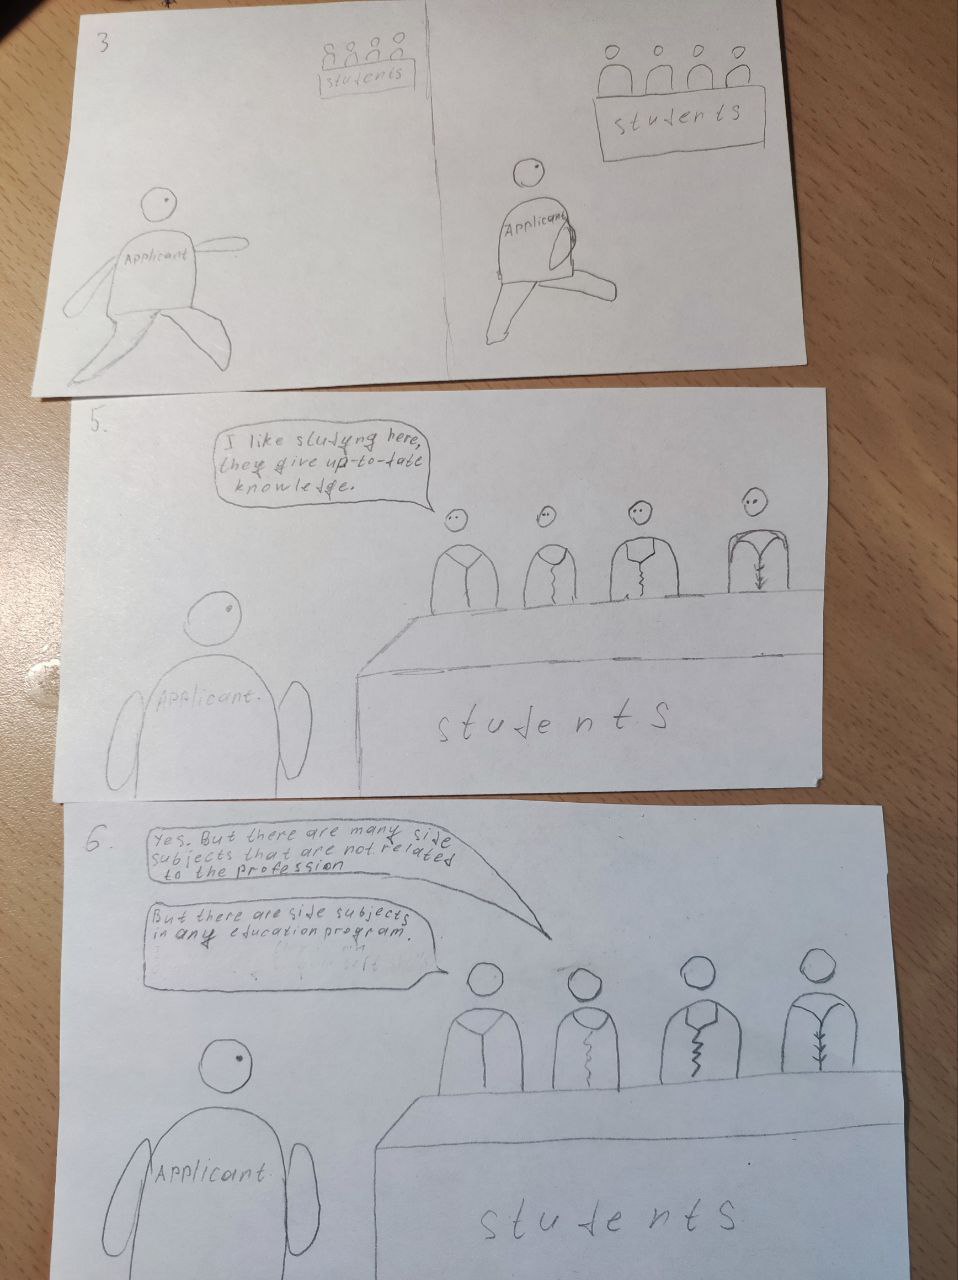 3
students
students
Applicant
Applicant
5.
I like studyng here,
they give up-to-date
knowledge.
Applicant.
students
6.
Yes. But there are many side
subjects that are not related
to the profession
But there are side subjects
in any education program.
Applicant
students